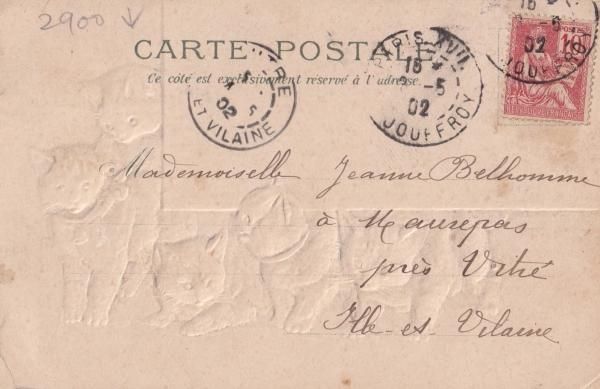 2900
CARTE POSTALE
Ce côté est exclusivement réservé à l'adresse
PARIS XVII
15
5
02
JOUFFROY
02
ET VILAINE
15
02
JOUFFROY
10
Mademoiselle Jeanne Belhomme
à Maurepas
près Vitré
Ille-et-Vilaine